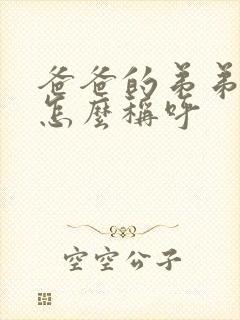 爸爸的弟弟
怎麼稱呼
空空公子